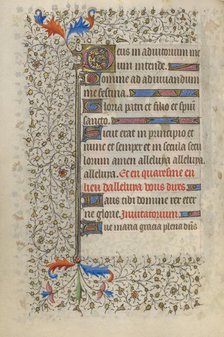 Deus in adiutorium me
um intende.
Domine ad adiuuandum
me festina.
Gloria patri et filio et spui
sancto.
Sicut erat in principio et
nunc et semper et in secula secu
lorum amen alleluya alleluya.
alleluya. Et en quaresme en
lieu dalleluya vous dires.
Laus tibi domine rex eter
ne glorie. Inuitatorium.
Aue maria gracia plena dns